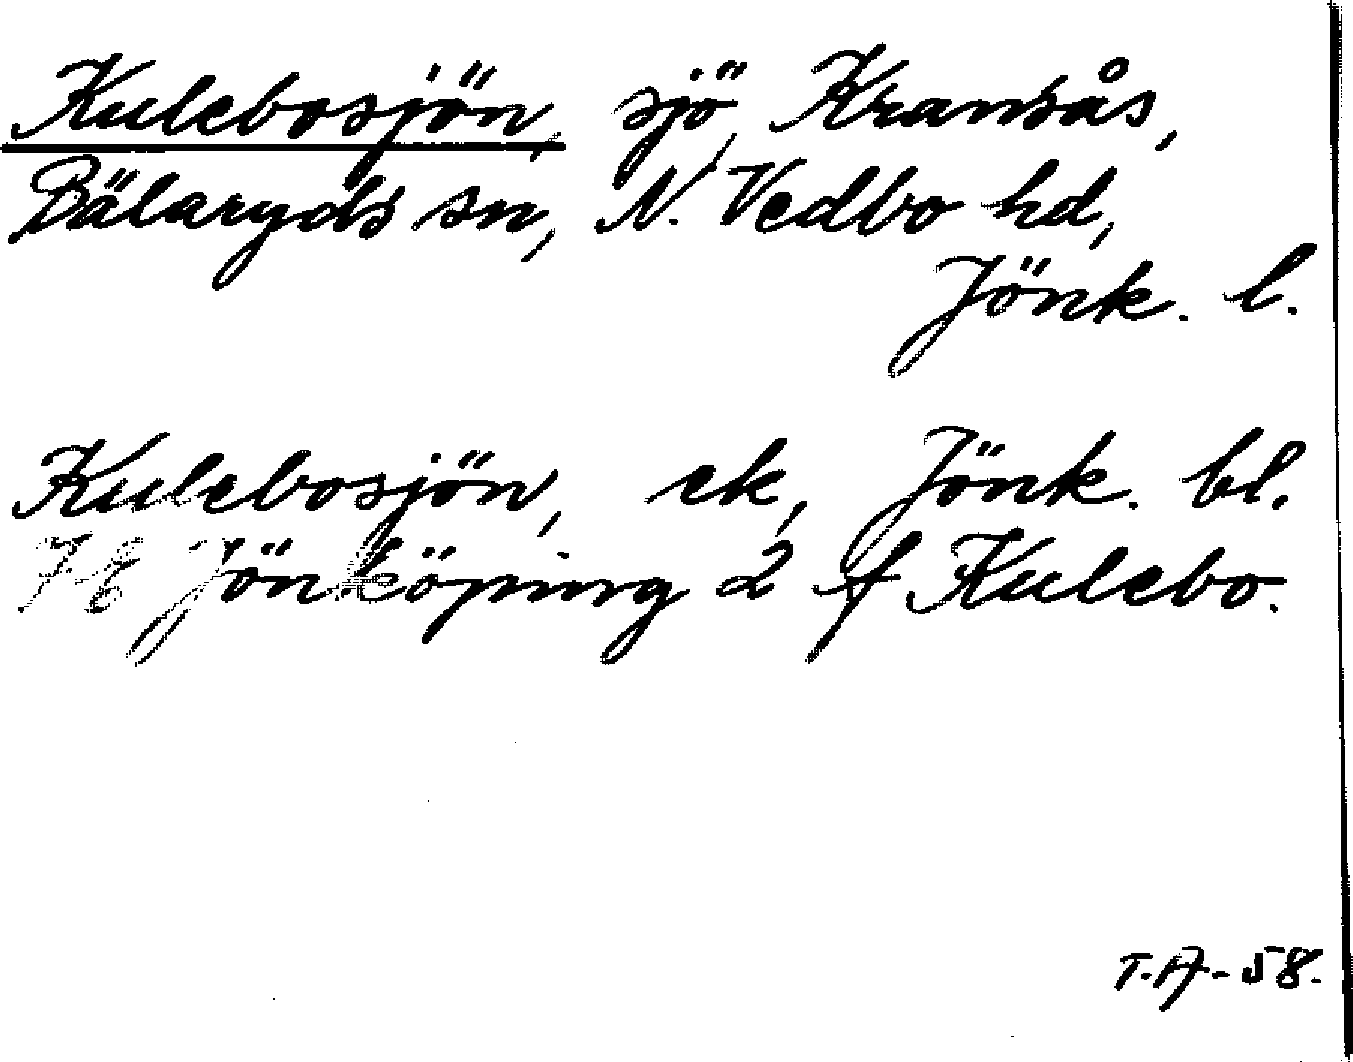 Kulebosjön, sjö, Kransås,
Bälaryds sn, N. Vedbo hd,
Jönk. l.
Kulebosjön, ek, Jönk. bl.
7E Jönköping 2 f Kulebo.
T.A-58.